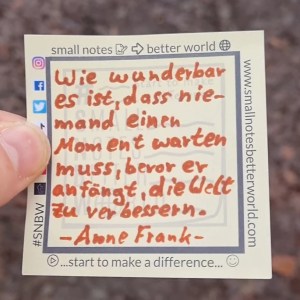 small notes ⇨ better world
Wie wunderbar
es ist, dass nie-
mand einen
Moment warten
muss, bevor er
anfängt, die Welt
zu verbessern.
- Anne Frank -
#SNBW
www.smallnotesbetterworld.com
...start to make a difference...